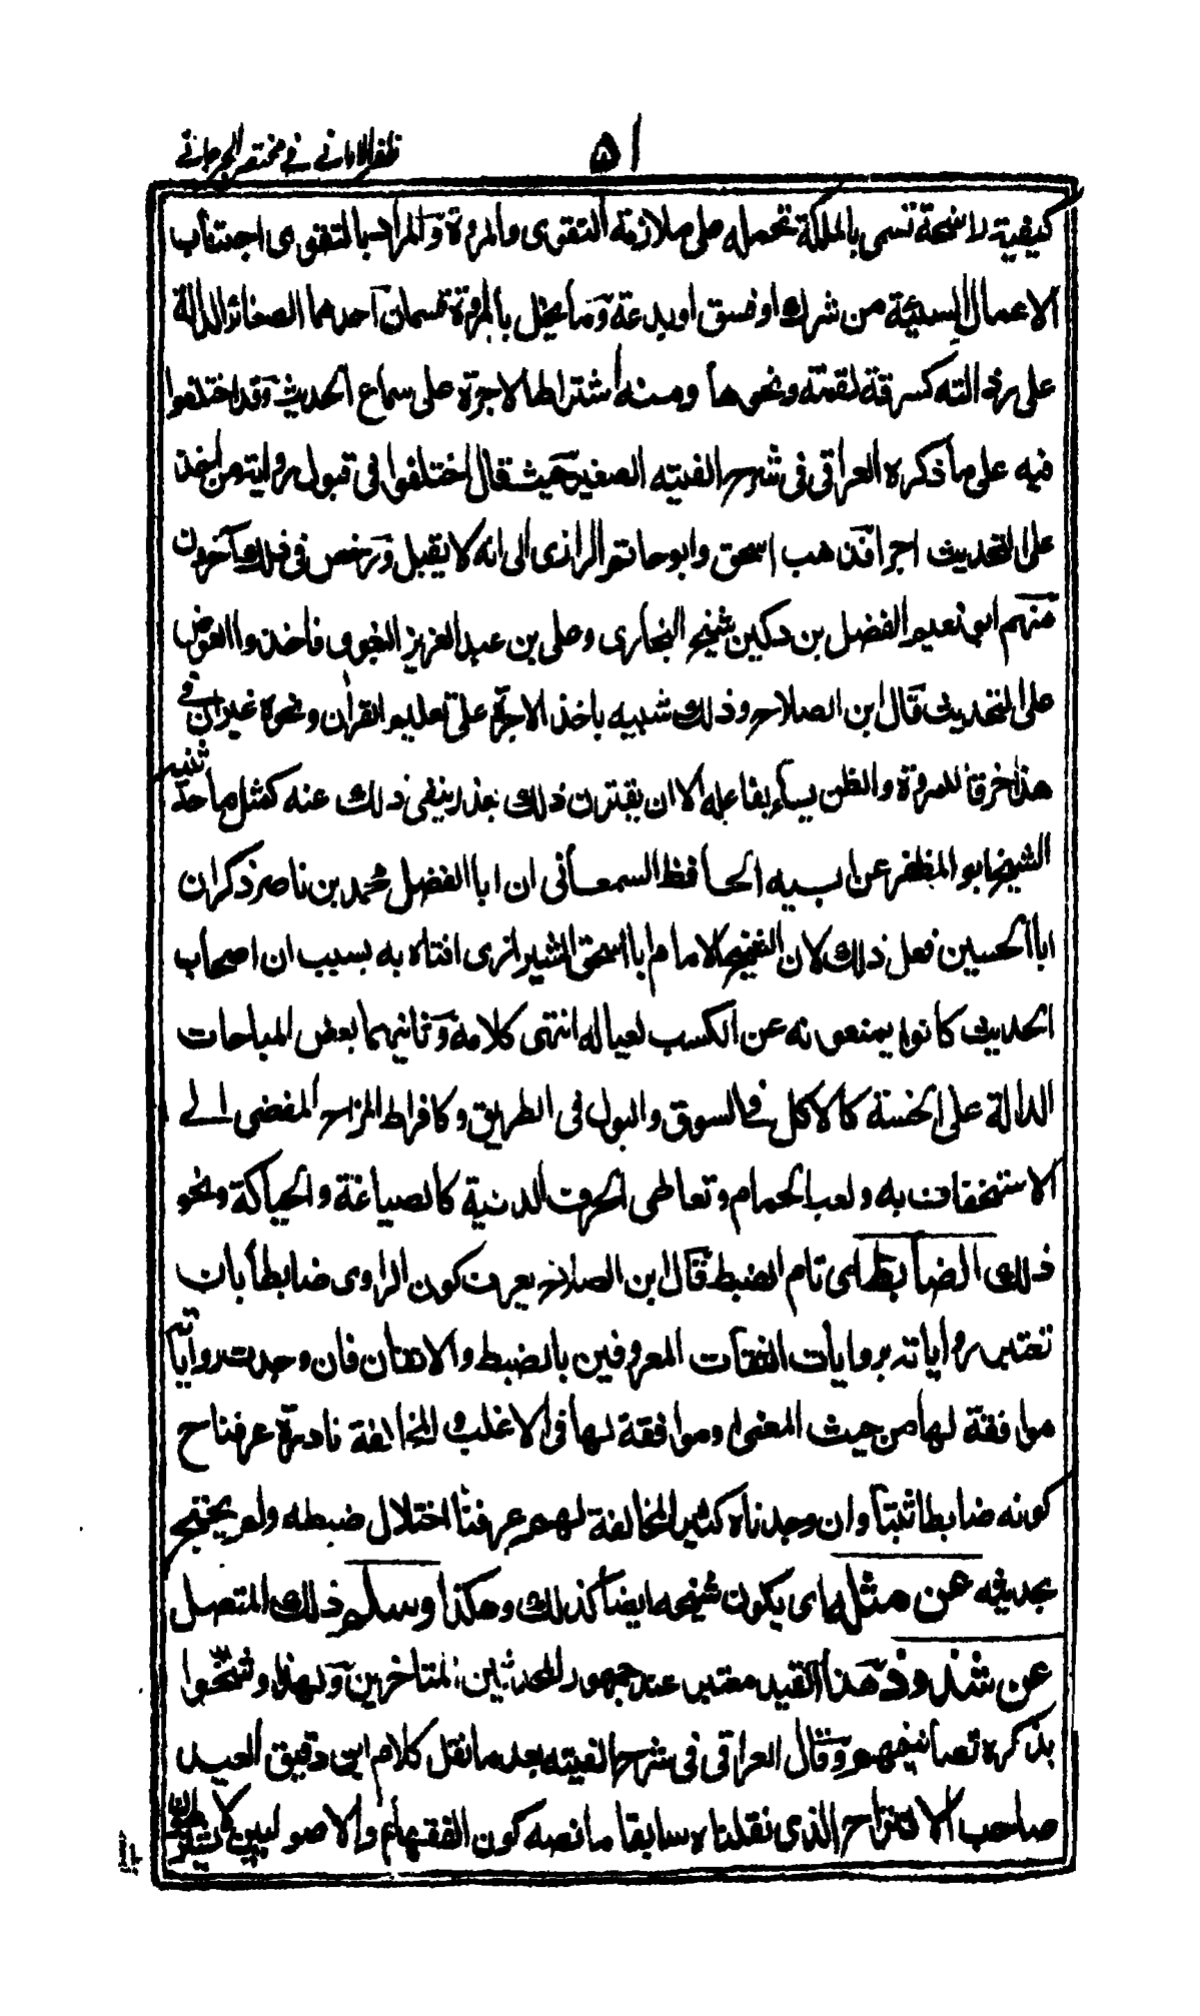 ظفر الامانی فے مختصر الجرجانی
۵۱
كيفية راسخة تسمى بالملكة تحمله على ملازمة التقوى والمروة والمراد بالتقوى اجتناب
الاعمال السيئة من شرك او فسق او بدعة وما يخل بالمروة قسمان احدهما الصغائر الدالة
على رذالته كسرقة لقمة ونحوها ومنه اشتراط الاجرة على سماع الحديث وقد اختلفوا
فيه على ما ذكره العراقى فى شرح الفيته الصغير حيث قال اختلفوا فى قبول رواية من اخذ
على التحديث اجرا فذهب اسحق وابو حاتم الرازى الى انه لا يقبل ورخص فى ذلك آخرون
منهم ابو نعيم الفضل بن دكين شيخ البخارى وعلى بن عبد العزيز البغوى فاخذوا العوض
على التحديث قال ابن الصلاح وذلك شبيه باخذ الاجرة على تعليم القرآن ونحوه غير ان فى
هذا خرقا للمروة والظن يساء بفاعله الا ان يقترن ذلك بعذر ينفى ذلك عنه كمثل ما حدثنيه
الشيخ ابو المظفر عن ابيه الحافظ السمعانى ان ابا الفضل محمد بن ناصر ذكر ان
ابا الحسين فعل ذلك لان الشيخ الامام ابا اسحق الشيرازى افتاه به بسبب ان اصحاب
الحديث كانوا يمنعونه عن الكسب لعياله انتهى كلامه وثانيهما بعض المباحات
الدالة على الخسة كالاكل فى السوق والبول فى الطريق وكافراط المزاح المفضى الے
الاستخفاف به ولعب الحمام وتعاطى الحرف الدنية كالصياغة والحياكة ونحو
ذلك الضابط اى تام الضبط قال ابن الصلاح يعرف كون الراوى ضابطا بان
تعتبر رواياته بروايات الثقات المعروفين بالضبط والاتقان فان وجدت رواياته
موافقة لها من حيث المعنى او موافقة لها فى الاغلب والمخالفة نادرة عرفنا ح
كونه ضابطا ثبتا وان وجدناه كثير المخالفة لهم عرفنا اختلال ضبطه ولم يحتج
بحديثه عن مثله اى يكون شيخه ايضا كذلك وهكذا وسلم ذلك المتصل
عن شذوذ هذا القيد معتبر عند جمهور المحدثين المتاخرين ولهذا وشحوا
بذكره تصانيفهم وقال العراقى فى شرح الفيته بعد ما نقل كلام ابن دقيق العيد
صاحب الاقتراح الذى نقلناه سابقا ما نصه كون الفقهاء والاصوليين لا يشترطون